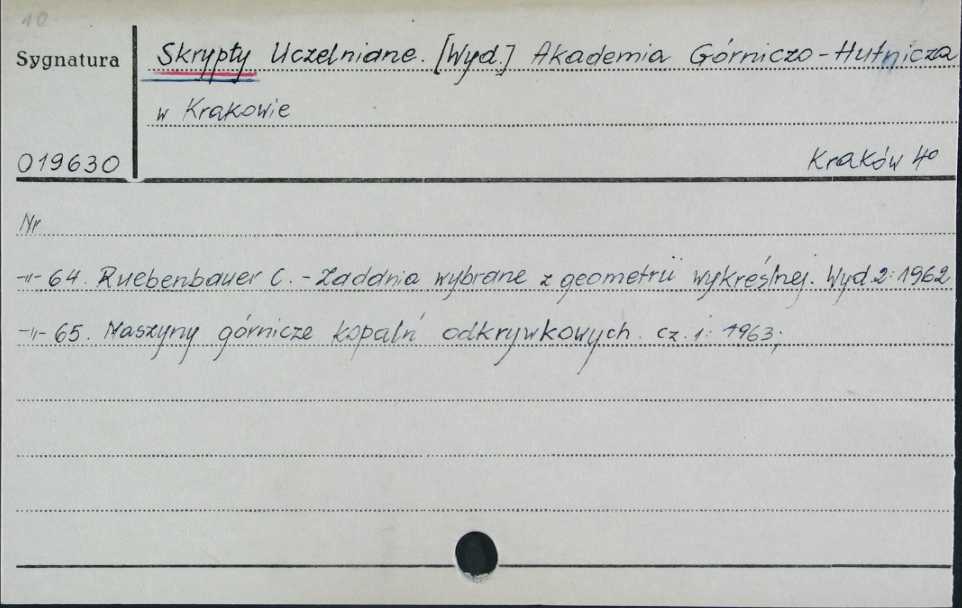 10
Sygnatura
Skrypty Uczelniane. [Wyd.] Akademia Górniczo-Hutnicza
w Krakowie
019630
Kraków 4°
Nr
-"- 64. Ruebenbauer C. - Zadania wybrane z geometrii wykreślnej. Wyd.2: 1962
-"- 65. Maszyny górnicze kopalń odkrywkowych. cz. 1: 1963;